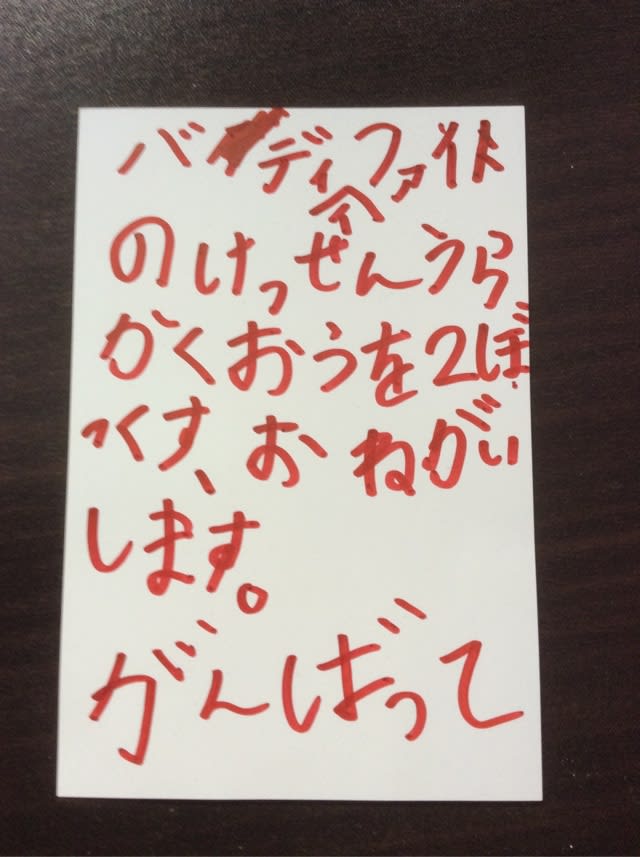 バディファイト
のけっせんうら
がくおうを2ぼ
っくす、おねがい
します。
がんばって